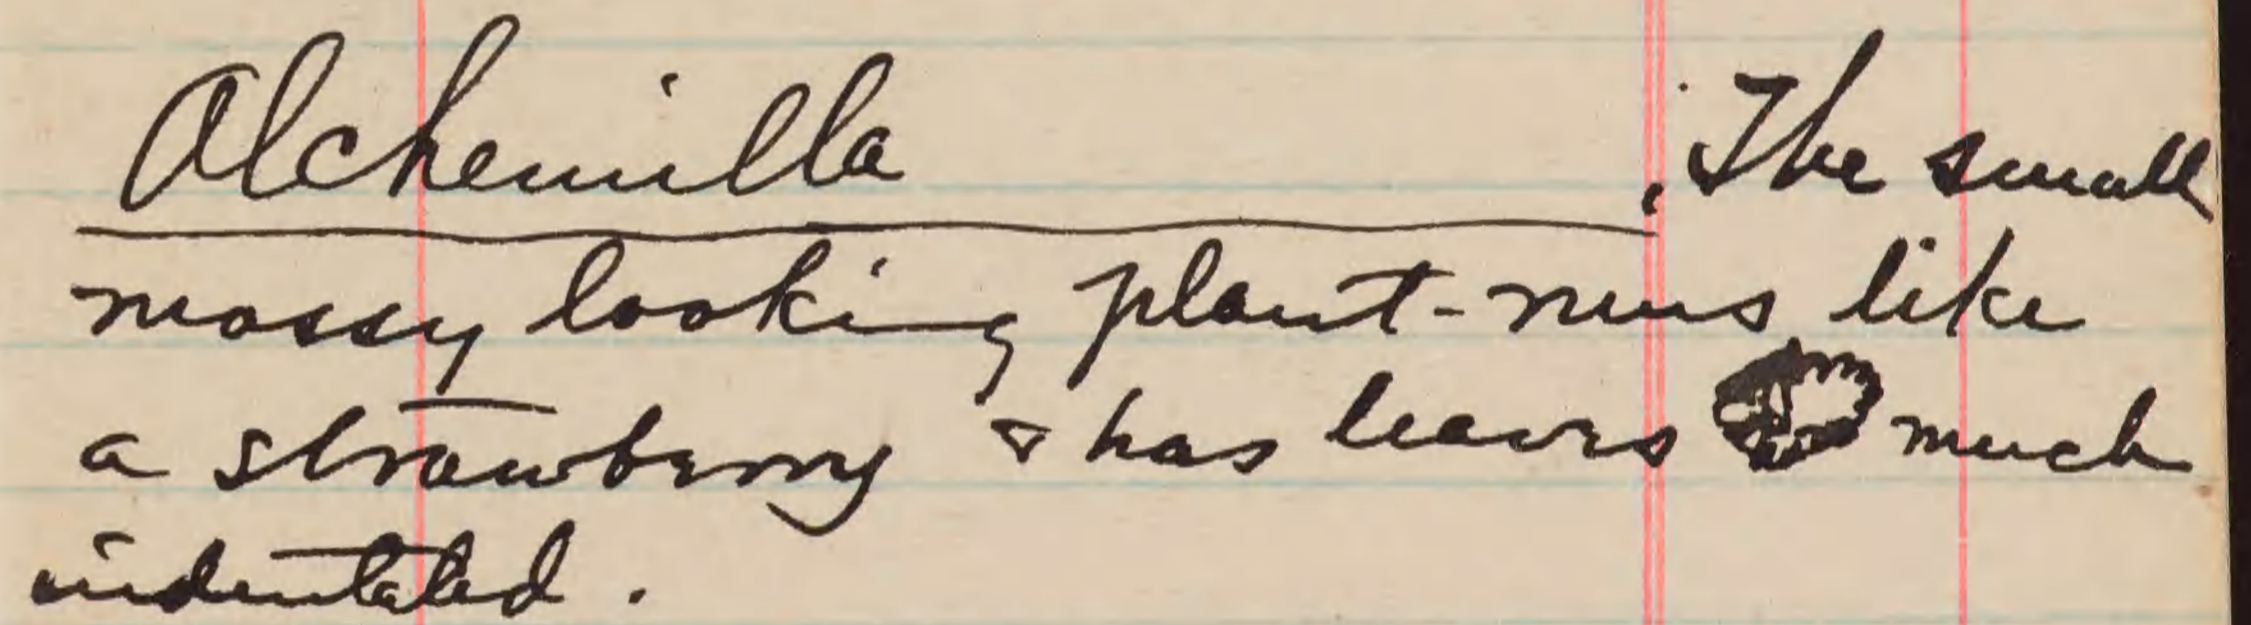 Alchemilla . The small
mossy looking plant - runs like
a strawberry & has leaves much
indentated .